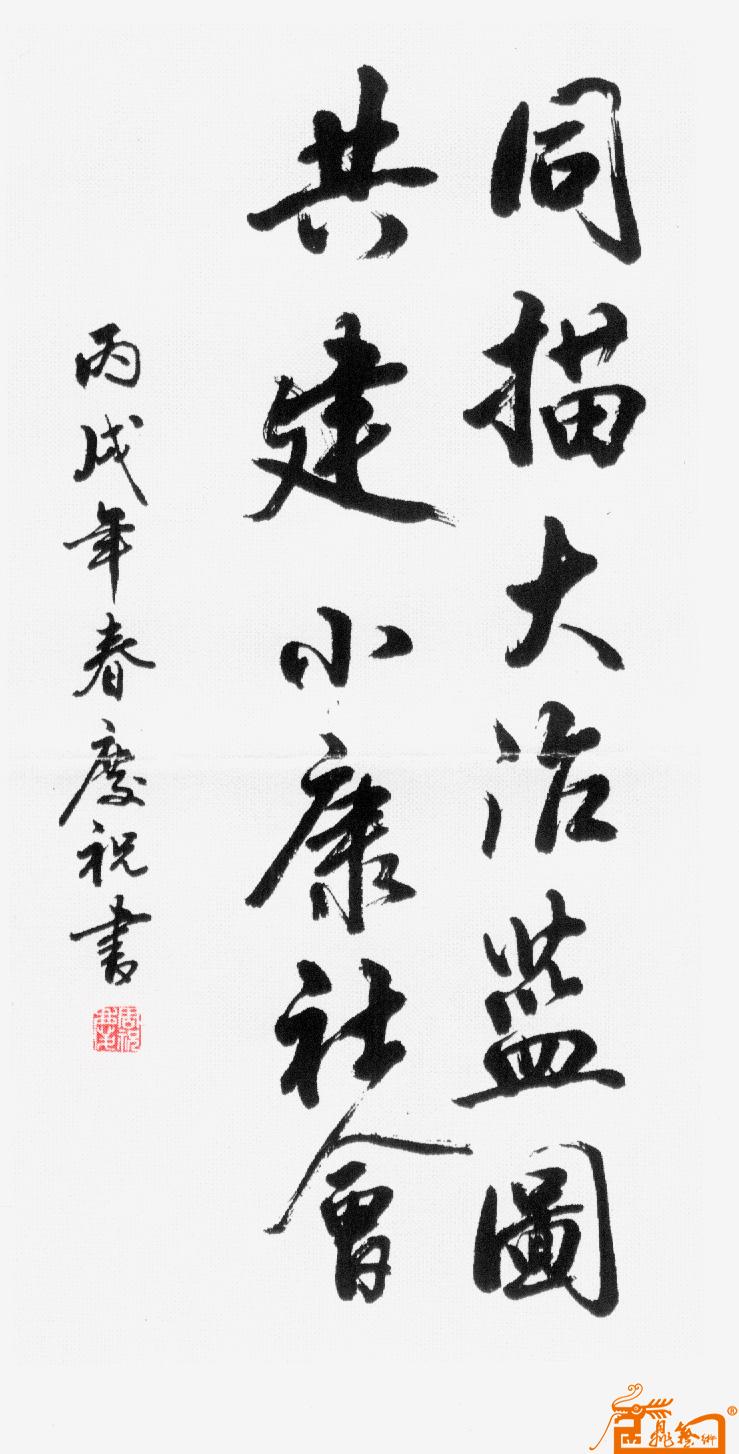 同描大治蓝圖
共建小康社會
丙戌年春慶祝書